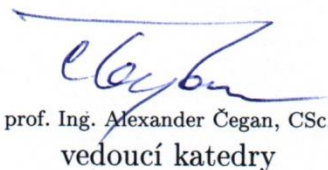 prof. Ing. Alexander Čegan, CSc
vedoucí katedry